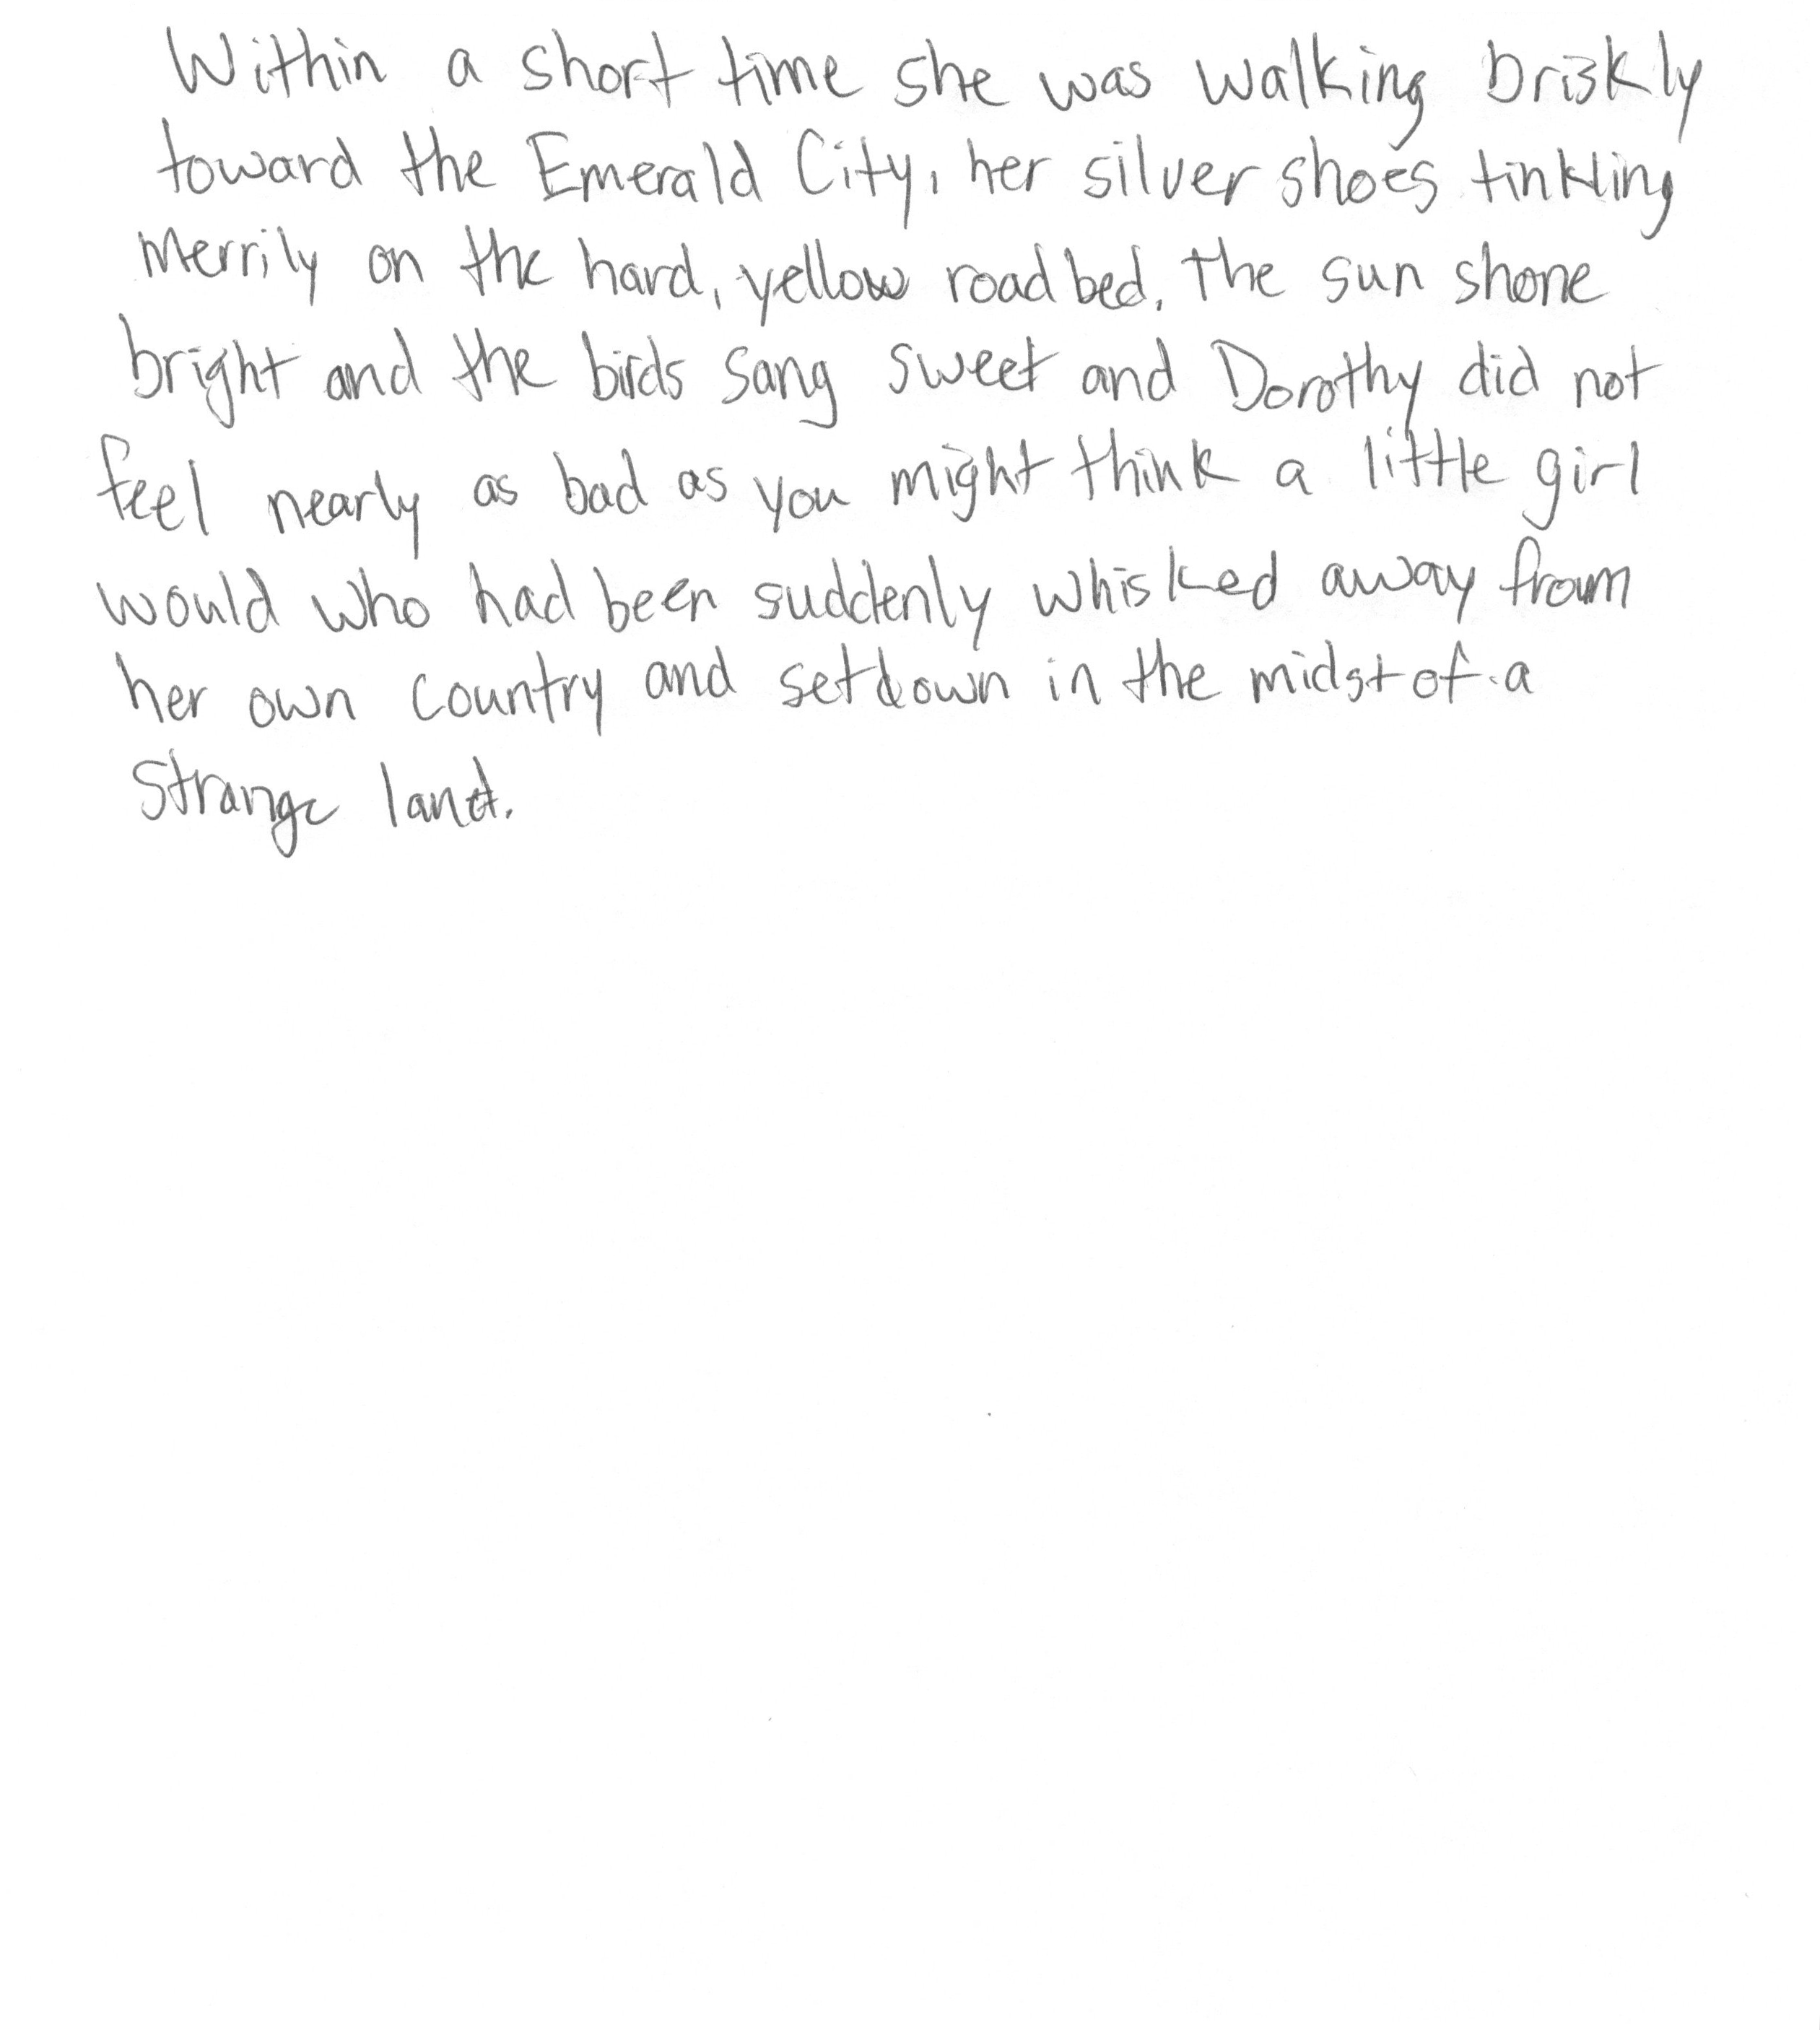 Within a short time she was walking briskly
toward the Emerald City, her silver shoes tinkling
Merrily on the hard, yellow road bed. the sun shone
bright and the birds sang sweet and Dorothy did not
feel nearly as bad as you might think a little girl
would who had been suddenly whisked away from
her own country and set down in the midst of a
Strange land.